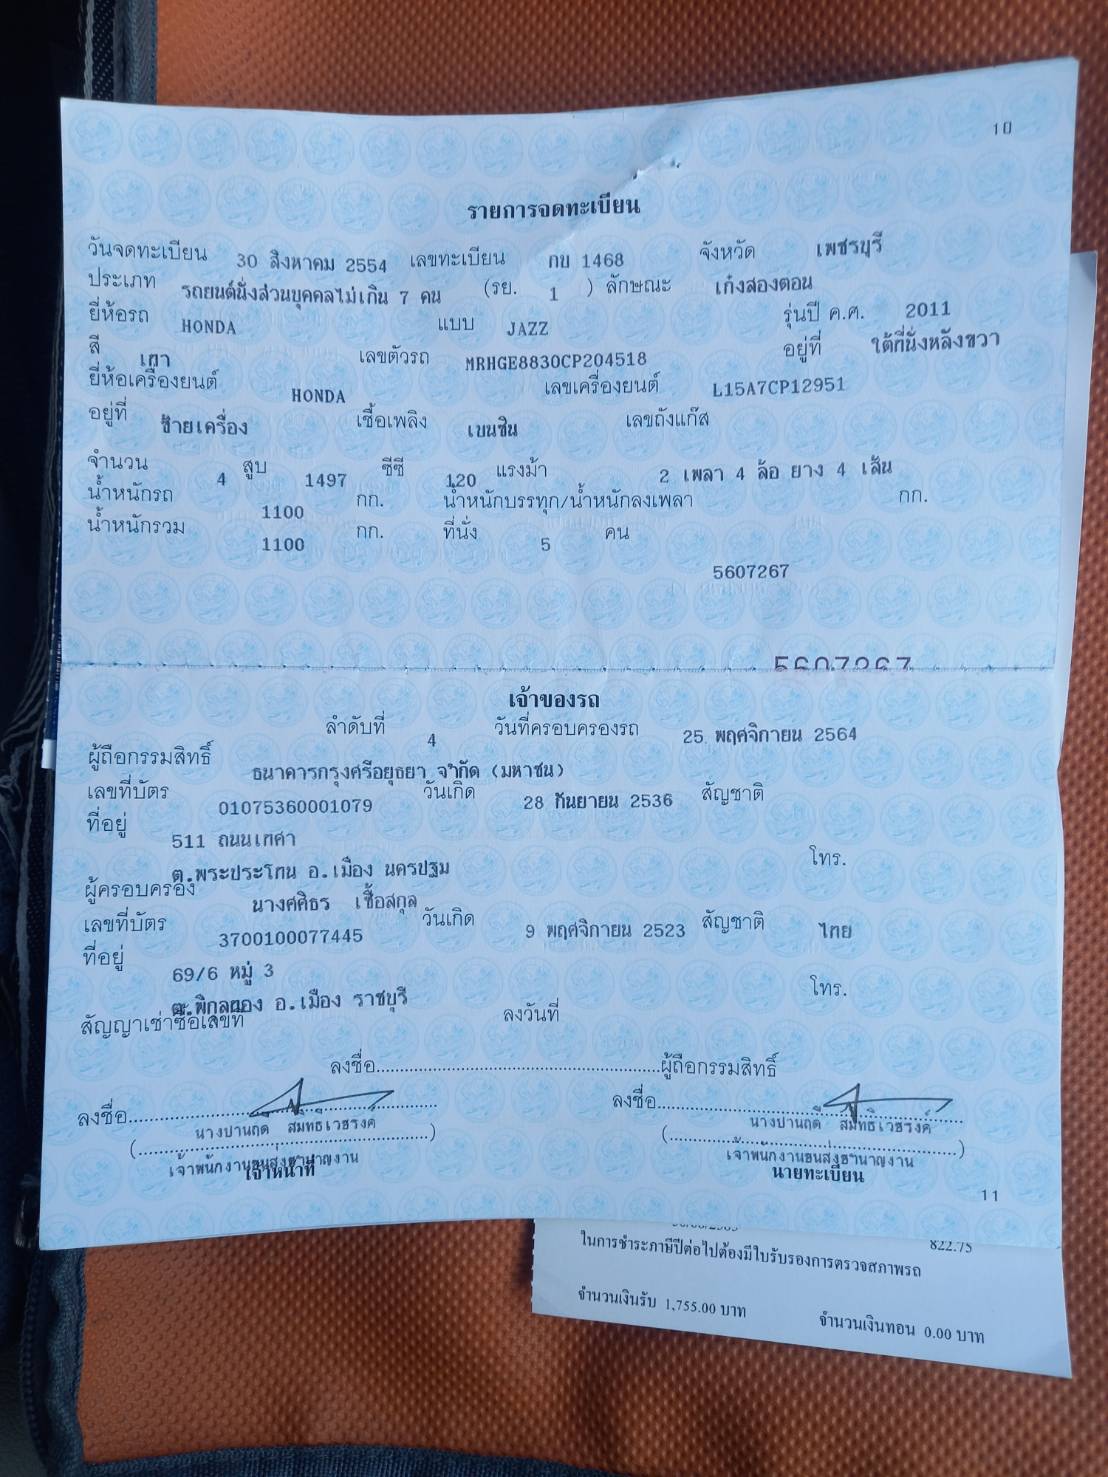 10
รายการจดทะเบียน
วันจดทะเบียน 30 สิงหาคม 2554 เลขทะเบียน กบ 1468 จังหวัด เพชรบุรี
ประเภท รถยนต์นั่งส่วนบุคคลไม่เกิน 7 คน (รย. 1 ) ลักษณะ เก๋งสองตอน
ยี่ห้อรถ HONDA แบบ JAZZ รุ่นปี ค.ศ. 2011
สี เทา เลขตัวรถ MRHGE8830CP204518 อยู่ที่ ใต้ที่นั่งหลังขวา
ยี่ห้อเครื่องยนต์ HONDA เลขเครื่องยนต์ L15A7CP12951
อยู่ที่ ซ้ายเครื่อง เชื้อเพลิง เบนซิน เลขถังแก๊ส
จำนวน 4 สูบ 1497 ซีซี 120 แรงม้า 2 เพลา 4 ล้อ ยาง 4 เส้น
น้ำหนักรถ 1100 กก. น้ำหนักบรรทุก/น้ำหนักลงเพลา กก.
น้ำหนักรวม 1100 กก. ที่นั่ง 5 คน
5607267
5607267
เจ้าของรถ
ลำดับที่ 4 วันที่ครอบครองรถ 25 พฤศจิกายน 2564
ผู้ถือกรรมสิทธิ์ ธนาคารกรุงศรีอยุธยา จำกัด (มหาชน)
เลขที่บัตร 01075360001079 วันเกิด 28 กันยายน 2536 สัญชาติ
ที่อยู่ 511 ถนนเทศา
ต.พระประโทน อ.เมือง นครปฐม โทร.
ผู้ครอบครอง นางศศิธร เชื้อสกุล
เลขที่บัตร 3700100077445 วันเกิด 9 พฤศจิกายน 2523 สัญชาติ ไทย
ที่อยู่ 69/6 หมู่ 3
ต.พิกุลทอง อ.เมือง ราชบุรี โทร.
สัญญาเช่าซื้อเลขที่ ลงวันที่
ลงชื่อ..................................................ผู้ถือกรรมสิทธิ์
ลงชื่อ.................................................. ลงชื่อ..................................................
นางปานฤดี สมิทธิเวชรงค์ นางปานฤดี สมิทธิเวชรงค์
(..................................................) (..................................................)
เจ้าพนักงานขนส่งชำนาญงาน เจ้าพนักงานขนส่งชำนาญงาน
เจ้าหน้าที่ นายทะเบียน
11
822.75
ในการชำระภาษีปีต่อไปต้องมีใบรับรองการตรวจสภาพรถ
จำนวนเงินรับ 1,755.00 บาท จำนวนเงินทอน 0.00 บาท